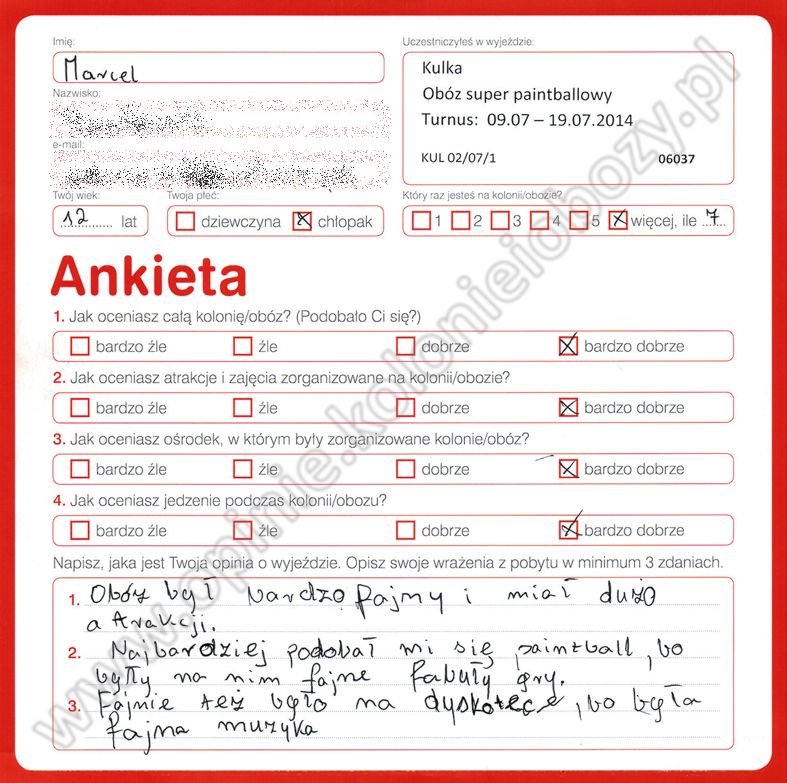 Imię:
Marcel
Nazwisko:
e-mail:
Twój wiek:
12 lat
Twoja płeć:
dziewczyna chłopak
Uczestniczyłeś w wyjeździe:
Kulka
Obóz super paintballowy
Turnus: 09.07 – 19.07.2014
KUL 02/07/1 06037
Który raz jesteś na kolonii/obozie?
1 2 3 4 5 więcej, ile 7
Ankieta
1. Jak oceniasz całą kolonię/obóz? (Podobało Ci się?)
bardzo źle źle dobrze bardzo dobrze
2. Jak oceniasz atrakcje i zajęcia zorganizowane na kolonii/obozie?
bardzo źle źle dobrze bardzo dobrze
3. Jak oceniasz ośrodek, w którym były zorganizowane kolonie/obóz?
bardzo źle źle dobrze bardzo dobrze
4. Jak oceniasz jedzenie podczas kolonii/obozu?
bardzo źle źle dobrze bardzo dobrze
Napisz, jaka jest Twoja opinia o wyjeździe. Opisz swoje wrażenia z pobytu w minimum 3 zdaniach.
1. Obóz był bardzo fajny i miał dużo
atrakcji.
2. Najbardziej podobał mi się paintball, bo
były na nim fajne fabuły gry.
3. Fajnie też było na dyskotece, bo była
fajna muzyka
www.opinie.kolonieiobozy.pl